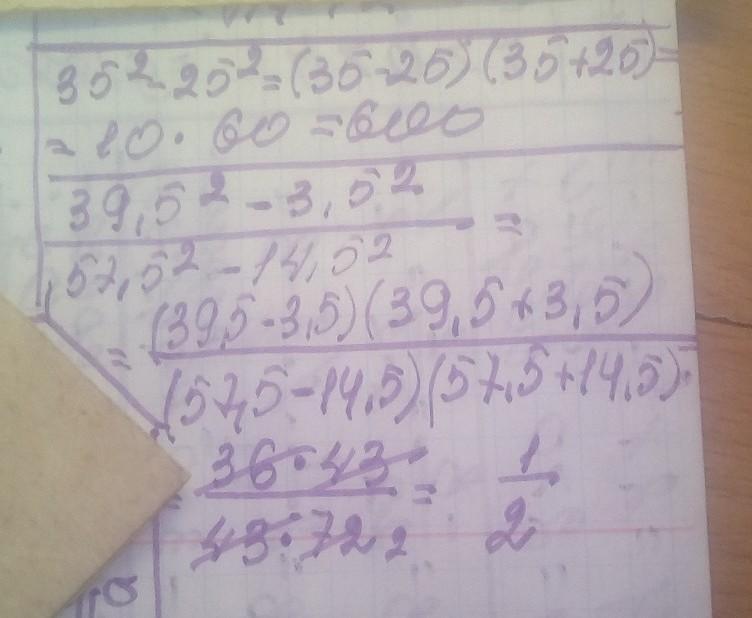 35²-25²=(35-25)(35+25)=
=10·60=600
39,5²-3,5²
57,5²-14,5² =
= (39,5-3,5)(39,5+3,5)
(57,5-14,5)(57,5+14,5)
= 36·43 = 1
43·72 2 2